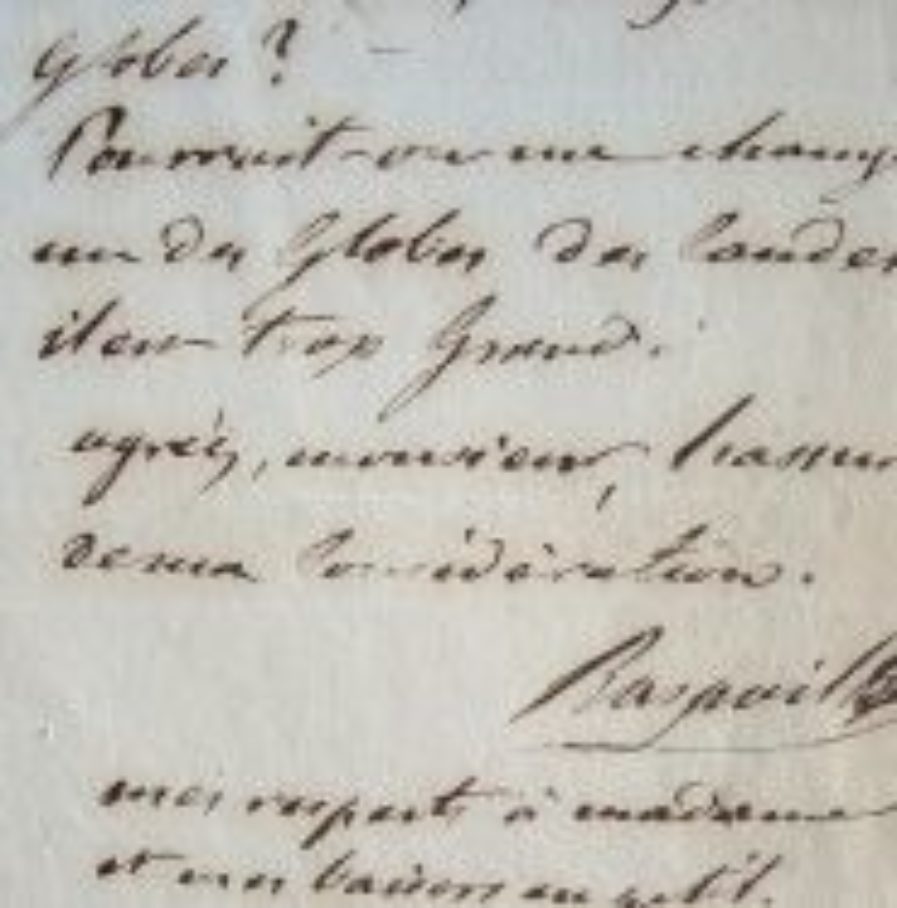 globes ?
Pourrait-on me chang
un des globes des Conden
il est trop grand.
agréez, monsieur, l'assur
de ma Considération.
Raspail
mes respects à madame
et mes baisers au petit.